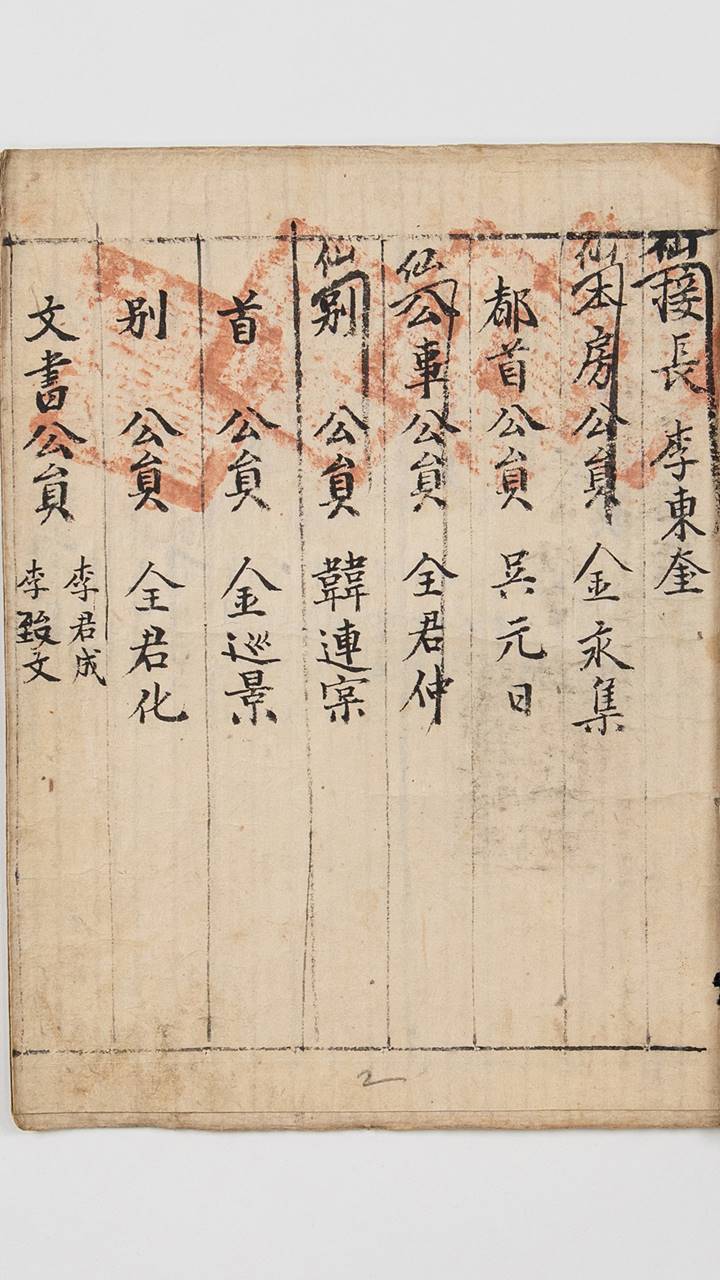 仙接長 李東奎
仙本房公員 金永集
都首公員 吳元日
仙公事公員 全君仲
仙別公員 韓連宲
首公員 金巡景
別公員 全君化
文書公員 李君成
李致文
2